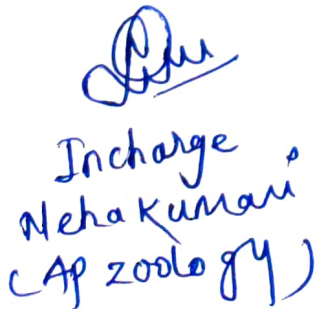 Incharge
Neha Kumari
(AP zoology)